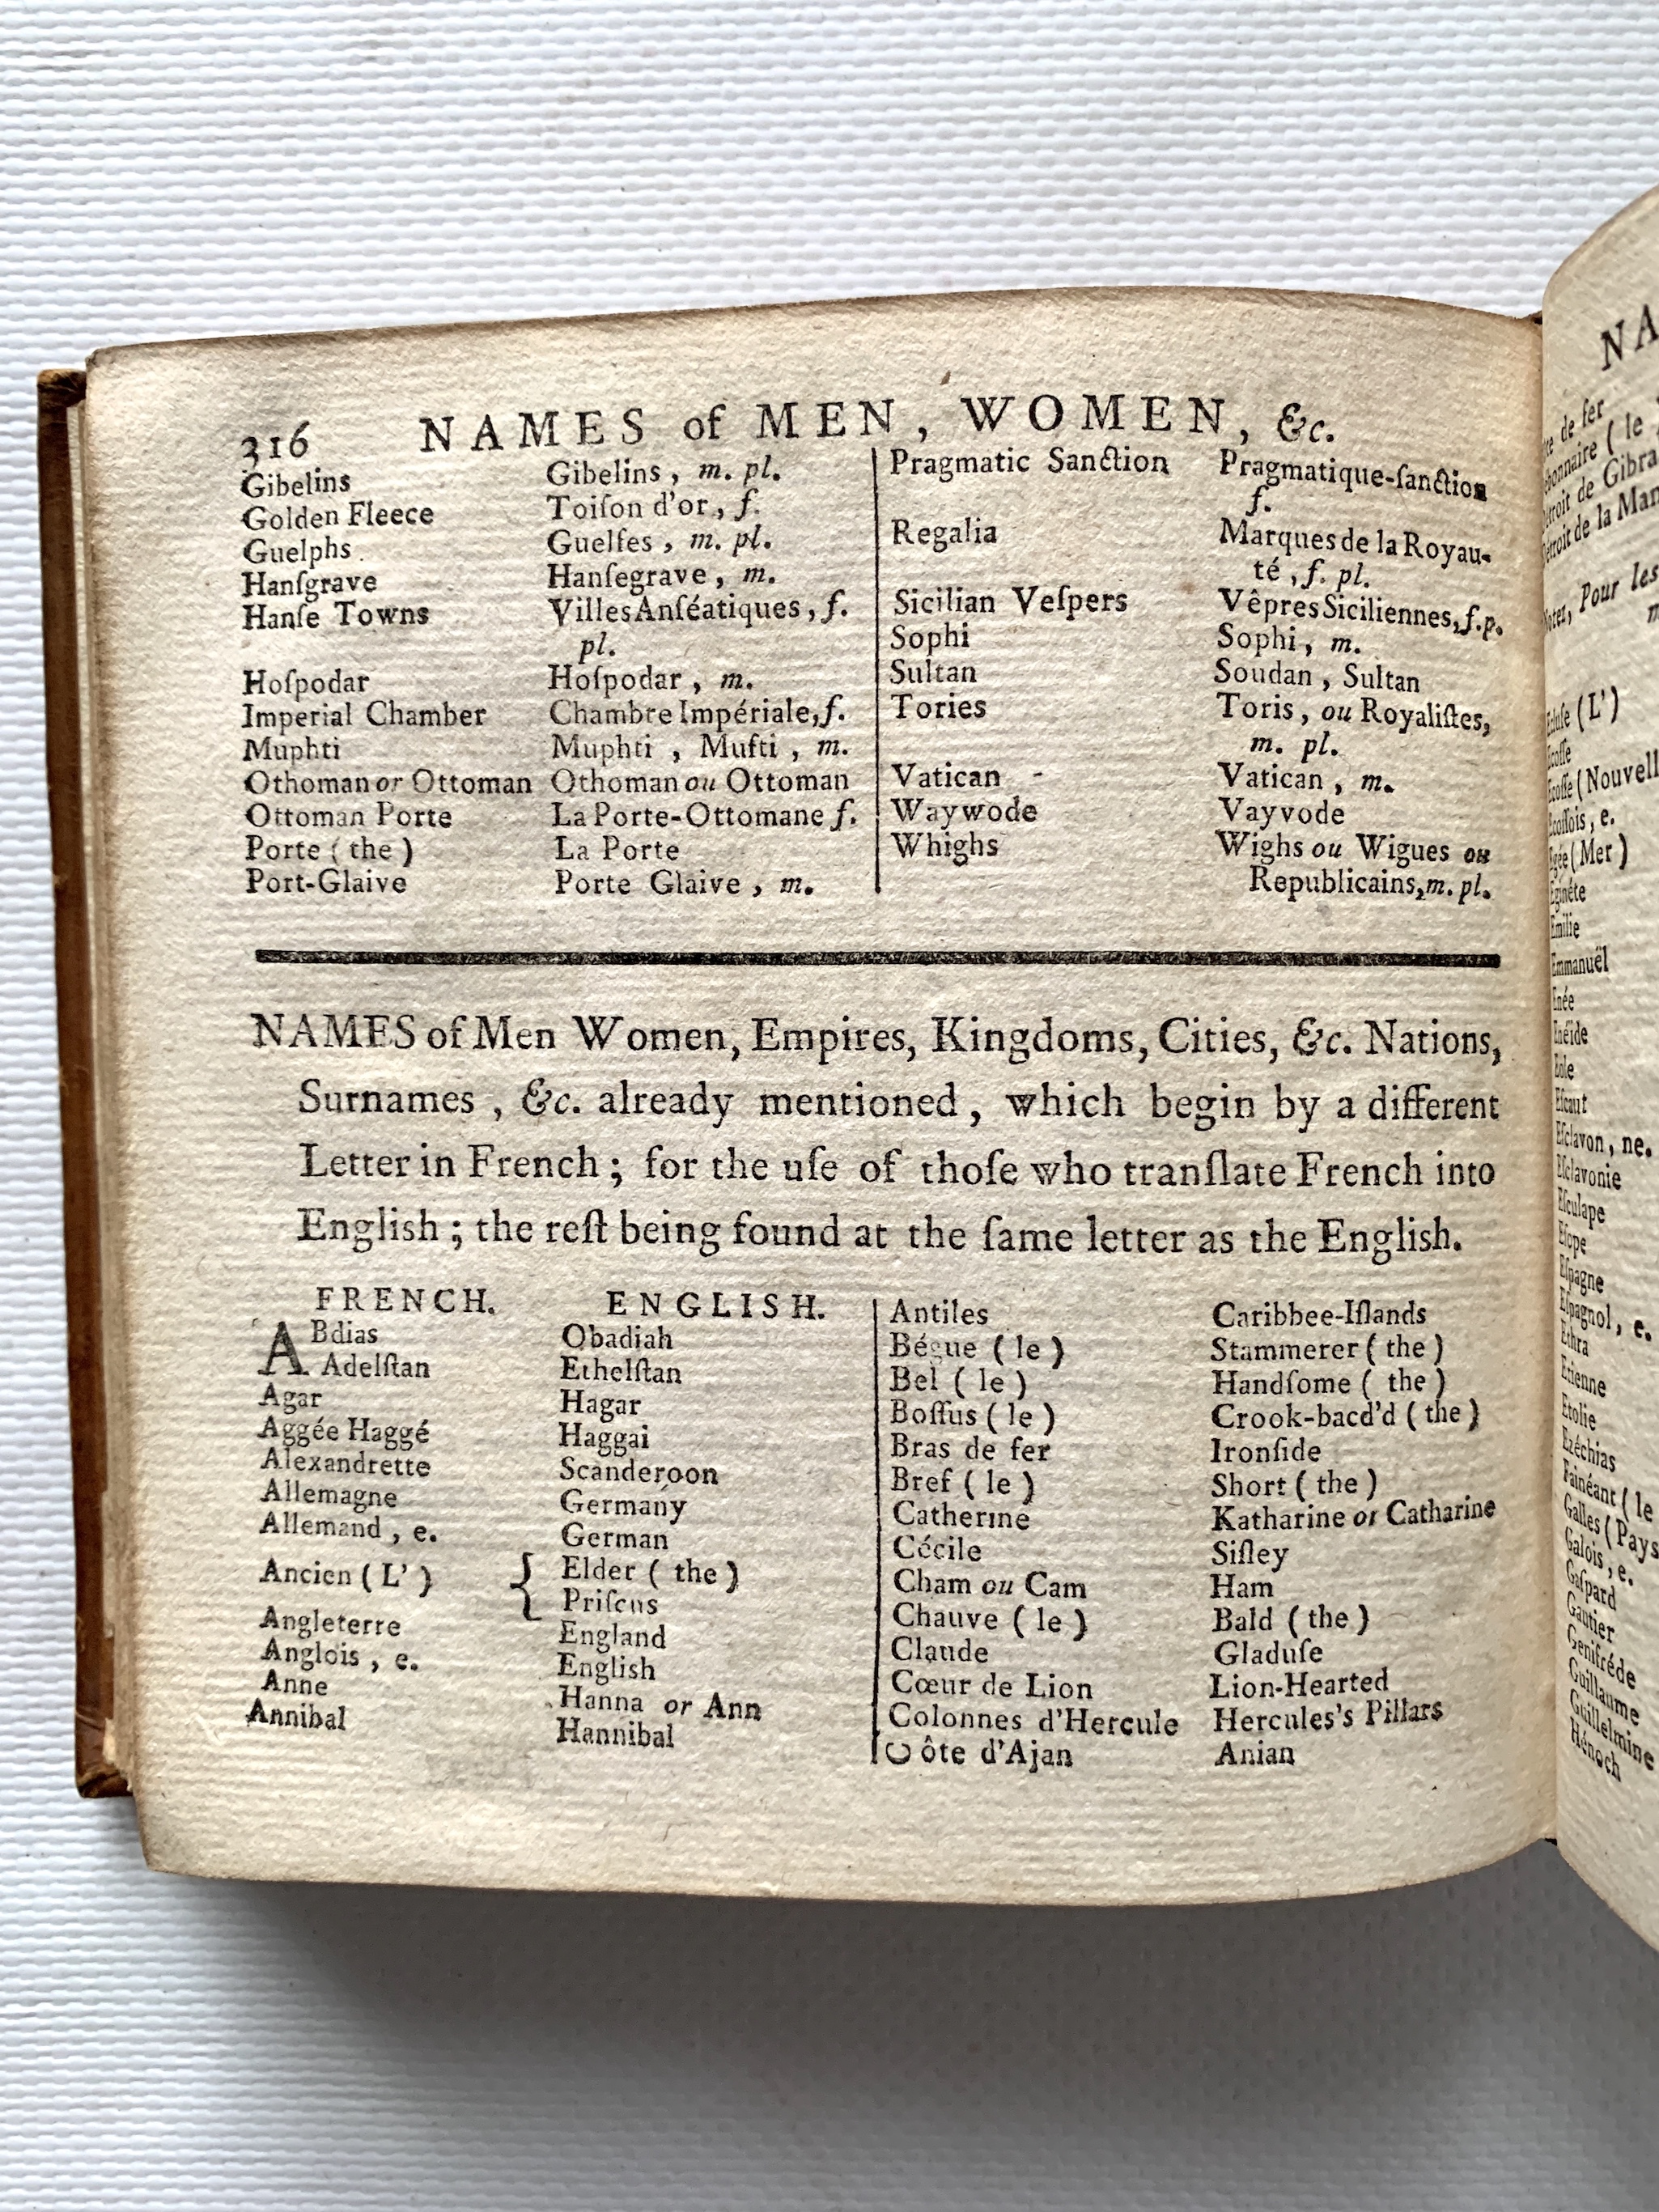 316 NAMES of MEN, WOMEN, &c.
Gibelins Gibelins, m. pl.
Golden Fleece Toiſon d'or, f.
Guelphs Guelfes, m. pl.
Hanſgrave Hanſegrave, m.
Hanſe Towns Villes Anſéatiques, f.
pl.
Hoſpodar Hoſpodar, m.
Imperial Chamber Chambre Impériale, f.
Muphti Muphti, Mufti, m.
Othoman or Ottoman Othoman ou Ottoman
Ottoman Porte La Porte-Ottomane f.
Porte (the) La Porte
Port-Glaive Porte Glaive, m.
Pragmatic Sanction Pragmatique-ſanction
f.
Regalia Marques de la Royau-
té, f. pl.
Sicilian Veſpers Vêpres Siciliennes, f. p.
Sophi Sophi, m.
Sultan Soudan, Sultan
Tories Toris, ou Royaliſtes,
m. pl.
Vatican - Vatican, m.
Waywode Vayvode
Whighs Wighs ou Wigues ou
Republicains, m. pl.
NAMES of Men Women, Empires, Kingdoms, Cities, &c. Nations,
Surnames, &c. already mentioned, which begin by a different
Letter in French; for the uſe of thoſe who tranſlate French into
Engliſh; the reſt being found at the ſame letter as the Engliſh.
FRENCH. ENGLISH.
ABdias Obadiah
Adelſtan Ethelſtan
Agar Hagar
Aggée Haggé Haggai
Alexandrette Scanderoon
Allemagne Germany
Allemand, e. German
Ancien (L') { Elder (the)
Priſcus
Angleterre England
Anglois, e. Engliſh
Anne Hanna or Ann
Annibal Hannibal
Antiles Caribbee-Iſlands
Bégue (le) Stammerer (the)
Bel (le) Handſome (the)
Boſſus (le) Crook-bacd'd (the)
Bras de fer Ironſide
Bref (le) Short (the)
Catherine Katharine or Catharine
Cécile Siſley
Cham ou Cam Ham
Chauve (le) Bald (the)
Claude Gladuſe
Cœur de Lion Lion-Hearted
Colonnes d'Hercule Hercules's Pillars
Côte d'Ajan Anian
NA
de fer
(le
de Gibra
de la Man
Pour les
(L')
(Nouvell
, e.
(Mer)
Eginéte
Emilie
Emmanuël
Enée
Enéïde
Eole
Eſclavon, ne.
Eſclavonie
Eſculape
Eſope
Eſpagne
Eſpagnol, e.
Ethra
Etienne
Etolie
Ezéchias
Fainéant (le
Galles (Pays
Galois, e.
Gaſpard
Gautier
Genifréde
Guillaume
Guillelmine
Hénoch